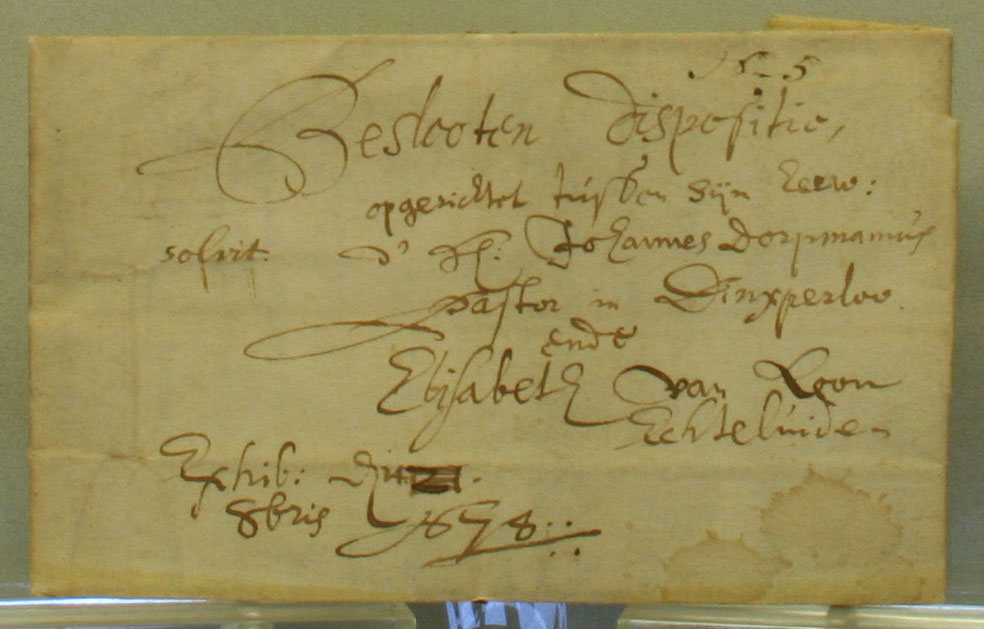 Beslooten Dispositie,
opgerichtet tusschen sijn Eerw:
solvit. d' H: Johannes Dorpmannús
pastor in Dinxperloo.
ende
Elisabeth van Loon
Echteluiden
Exhib:
8bris 1678